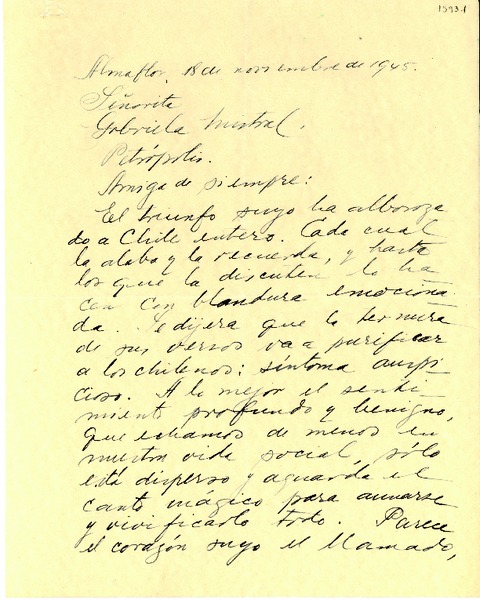 1593-1
Almaflor, 18 de noviembre de 1945.
Señorita
Gabriela Mistral.
Petrópolis.
Amiga de siempre:
El triunfo suyo ha alboroza
do a Chile entero. Cada cual
la alaba y la recuerda, y hasta
los que la discuten lo ha
cen con blandura emociona
da. Se dijera que la ternura
de sus versos va a purificar
a los chilenos: síntoma auspi
cioso. A lo mejor el senti
miento profundo y benigno,
que echamos de menos en
nuestra vida social, sólo
está disperso y aguarda el
canto mágico para aunarse
y vivificarlo todo. Parece
el corazón suyo el llamado,